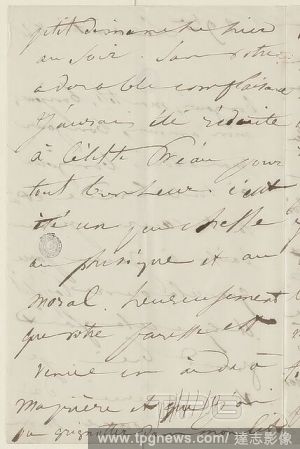 petit dimanche hier
au soir. Sans votre
adorable complaisance
j'aurais été réduite
à Céleste Préau pour
tout bonheur. c'eut
été un peu
au physique et au
moral. heureusement
que votre paresse est
venue en aide à
et que j'ai
pu grignotter mon
www.tpgnews.com / 達志影像